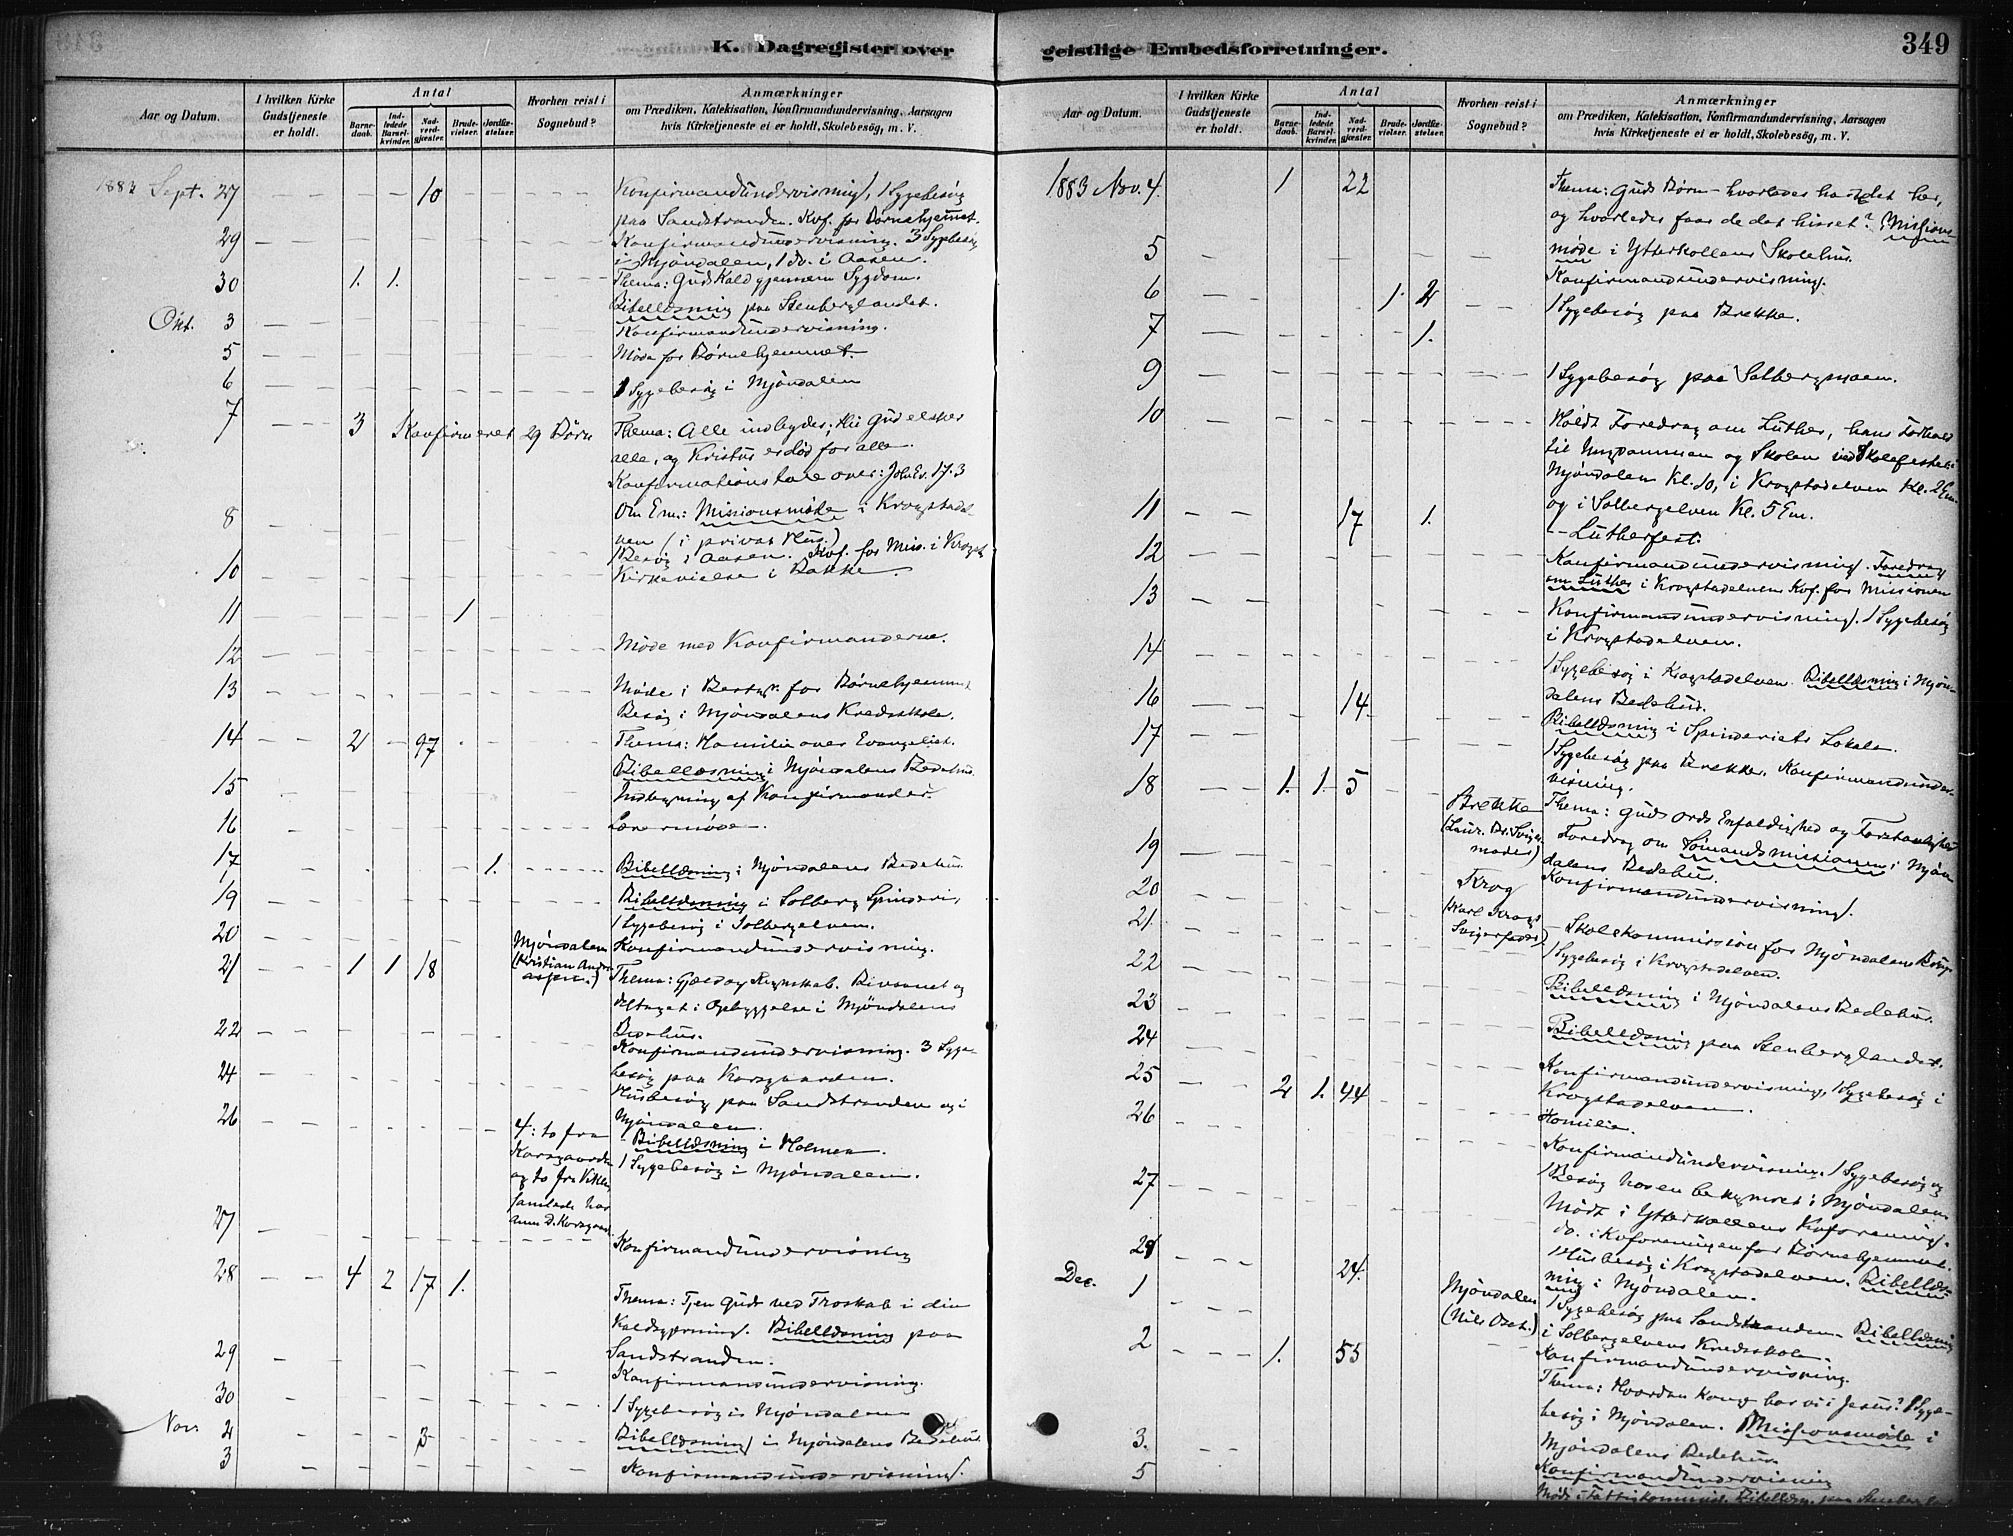 K. Dagregister over
Aar og Datum.
I hvilken Kirke Gudstjeneste er holdt.
Antal
Barnedaab.
Indledede Barselkvinder.
Nadverdgjæster.
Brudevielser.
Jordfæstelser.
Hvorhen reist i Sognebud?
Anmærkninger
om Prædiken, Katekisation, Konfirmandundervisning, Aarsagen
hvis Kirketjeneste ei er holdt, Skolebesög, m. V.
1883 Sept. 27 10 Konfirmandundervisning, 1 Sygebesög
paa Sandstranden. Kvf. for Børnehjemmet.
29 Konfirmandundervisning. 3 Sygebesög
i Mjöndalen, 1 do. i Aasen.
30 1. 1. Thema: Guds Kald gjennem Sygdom.
Bibellæsning paa Stenberglandet.
Okt. 3 Konfirmandundervisning.
5 Møde for Børnehjemmet.
6 1 Sygebesög i Mjöndalen
7 3 Konfirmeret 29 Børn Thema: Alle indbydes; thi Gud elsker
alle, og Kristus er død for alle
Konfirmationstale over: Joh. Ev. 17.3
8 Om Em.: Missionsmøde i Krogstadel-
ven (i privat Hus.)
1 Besög i Aasen. Kvf. for Miss. i Krogst.
10 Kirkevielse i Bakke.
11 1
12 Møde med Konfirmanderne.
13 Møde i Bestyr. for Børnehjemmet
Besög i Mjöndalens Kredsskole.
14 2 97 Thema: Homilie over Evangeliet.
Bibellæsning i Mjöndalens Bedehus.
15 Indtegning af Konfirmander.
16 Læremøde.
17 1. Bibellæsning i Mjöndalens Bedehus.
19 Bibellæsning i Solberg Spinderi,
1 Sygebesög i Solbergelven.
20 Konfirmandundervisning.
21 1 1 18 Mjöndalen (Kristian Andreassen.) Thema: Gjæld og Regnskab. Bivaanet og
deltaget i Opbyggelse i Mjöndalens
Bedehus.
22 Konfirmandundervisning. 3 Syge-
besög paa Korsgaarden.
24 Husbesög paa Sandstranden og i
Mjöndalen.
26 4: to fra Korsgaarden og to fra samlede hos D. Korsgaard Bibellæsning i Holmen.
1 Sygebesög i Mjöndalen.
27 Konfirmandundervisning
28 4 2 17 1. Thema: Tjen Gud ved Troskab i din
Kaldsgjerning. Bibellæsning paa
Sandstranden.
29 Konfirmandundervisning.
30 1 Sygebesög i Mjöndalen
Nov. 2 3 Bibellæsning i Mjöndalens Bedehus.
3 Konfirmandundervisning.
geistlige Embedsforretninger.
349
Aar og Datum.
I hvilken Kirke Gudstjeneste er holdt.
Antal
Barnedaab.
Indledede Barselkvinder.
Nadverdgjæster.
Brudevielser.
Jordfæstelser.
Hvorhen reist i Sognebud?
Anmærkninger
om Prædiken, Katekisation, Konfirmandundervisning, Aarsagen
hvis Kirketjeneste ei er holdt, Skolebesög, m. V.
1883 Nov. 4. 1 22 Thema: Guds Børn – hvorledes har det her,
og hvorledes faar de det hisset? Missions-
møde i Ytterkollens Skolehus.
5 Konfirmandundervisning.
6 1. 2 1 Sygebesög paa Brekke.
7 1.
9 1 Sygebesög paa Solbergmoen.
10 Holdt Foredrag om Luther, hans Forhold
til Ungdommen og Skolen ved Skolefester i
Mjöndalen Kl. 10, i Krogstadelven Kl. 2 Em.
og i Solbergelven Kl. 5 Em.
11 17 1. Lutherfest.
12 Konfirmandundervisning. Foredrag
om Luther i Krogstadelvens Kvf. for Missionen
13 Konfirmandundervisning. 1 Sygebesög
i Krogstadelven.
14 1 Sygebesög i Krogstadelven. Bibellæsning i Mjön-
dalens Bedehus.
16 14 Bibellæsning i Spinderiets Lokale.
17 1 Sygebesög paa Brekke. Konfirmandunder-
visning.
18 1. 1. 5 Brekke Thema: Guds Ords Enfoldighed og
19 Foredrag om Sømandsmissionen i Mjön-
dalens Bedehus.
20 Krog (Karl Krogs Svigerfader) Konfirmandundervisning.
21. Skolekommission for Mjöndalens
1 Sygebesög i Krogstadelven.
22 Bibellæsning i Mjöndalens Bedehus.
23 Bibellæsning paa Stenberglandet.
24 Konfirmandundervisning, 1 Sygebesög i
Krogstadelven.
25 2 1. 44 Homilie.
26 Konfirmandundervisning. 1 Sygebesög og
1 Besög hos en bekymret i Mjöndalen
27 Møde i Ytterkollens Kvforening.
do. i Kvforeningen for Børnehjemmet.
29 24. 1 Husbesög i Krogstadelven. Bibellæs-
ning i Mjöndalen.
Dec. 1 Mjöndalen 1 Sygebesög paa Sandstranden. Bibellæsning
i Solbergelvens Kredsskole.
Konfirmandundervisning.
2 1. 55 Thema: Hvordan Konge har vi i Jesus? 1 Syge-
besög i Mjöndalen. Missionsmøde i
Mjöndalens Bedehus.
3. Konfirmandundervisning
5 Møde i Fattigkommis. Bibellæsn. paa